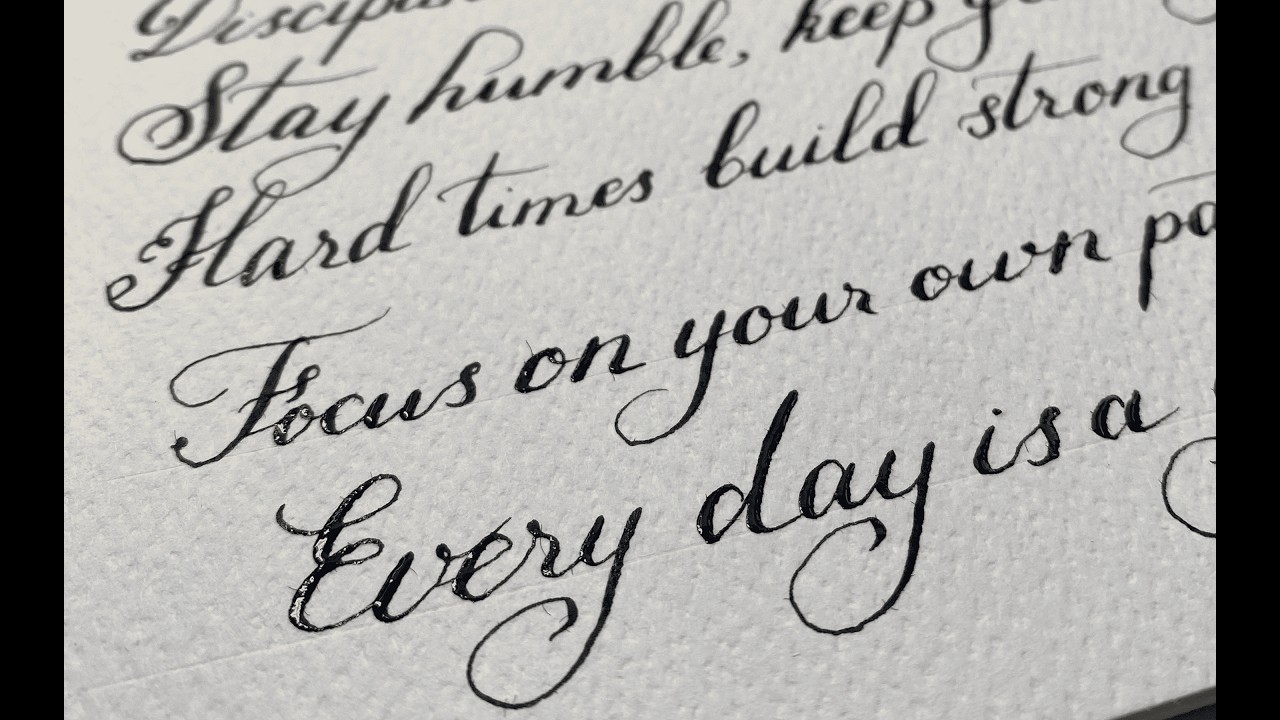 Stay humble, keep
Hard times build strong
Focus on your own
Every day is a